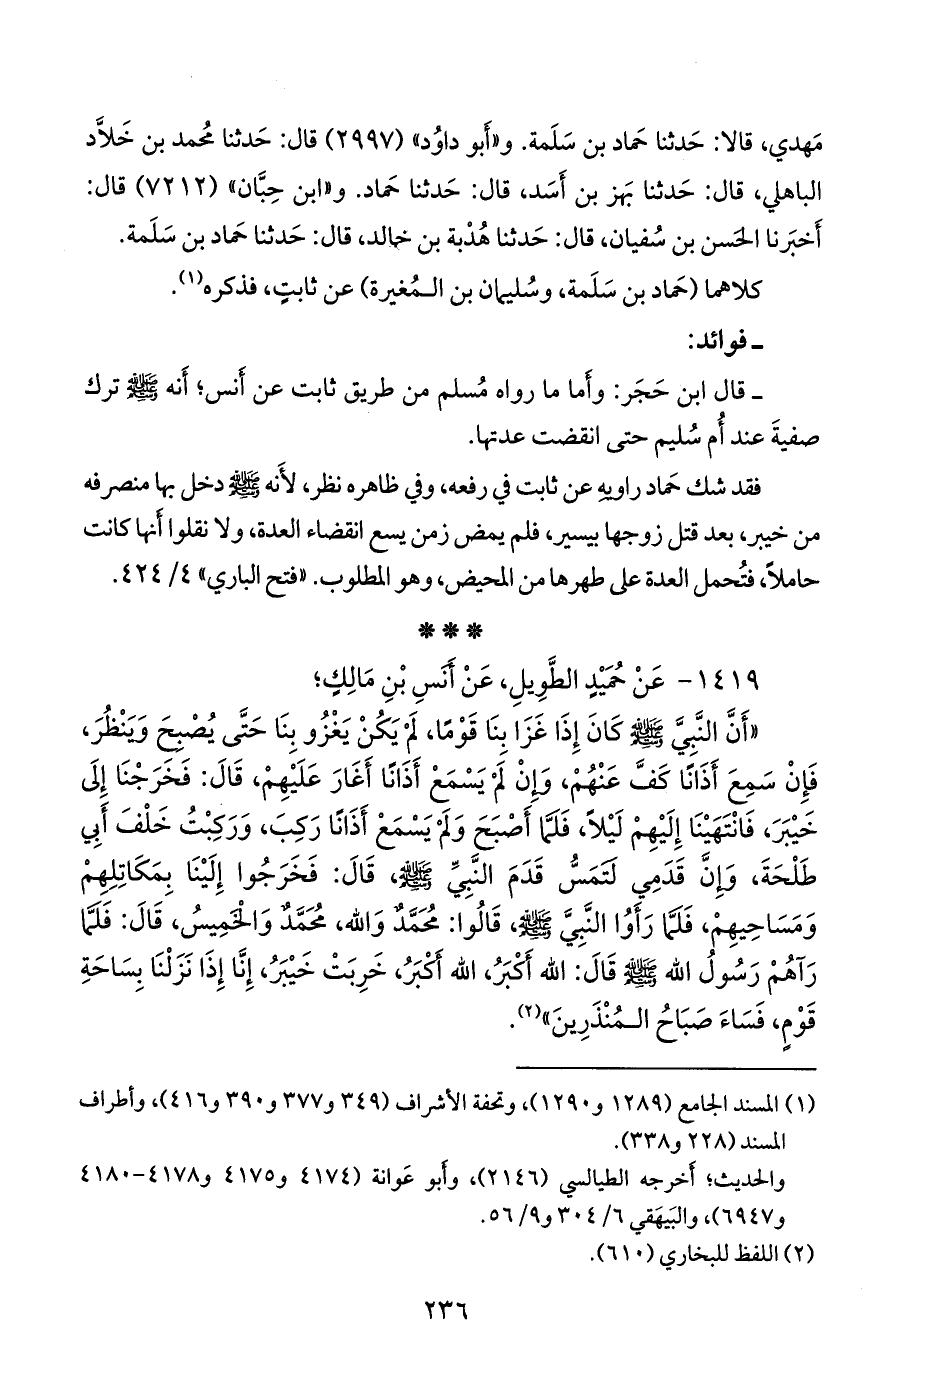 مَهدي، قالا: حَدثنا حَماد بن سَلَمة. و«أَبو داوُد» (٢٩٩٧) قال: حَدثنا مُحمد بن خَلاَّد
الباهلي، قال: حَدثنا بَهز بن أَسَد، قال: حَدثنا حَماد. و«ابن حِبَّان» (٧٢١٢) قال:
أَخبَرنا الحَسن بن سُفيان، قال: حَدثنا هُدْبة بن خالد، قال: حَدثنا حَماد بن سَلَمة.
كلاهما (حَماد بن سَلَمة، وسُليمان بن الـمُغيرة) عن ثابتٍ، فذكره(١).
ـ فوائد:
ـ قال ابن حَجَر: وأَما ما رواه مُسلم من طريق ثابت عن أَنس؛ أَنه ﷺ ترك
صفيةَ عند أُم سُليم حتى انقضت عدتها.
فقد شك حَماد راويهِ عن ثابت في رفعه، وفي ظاهره نظر، لأَنه ﷺ دخل بها منصرفه
من خيبر، بعد قتل زوجها بيسير، فلم يمض زمن يسع انقضاء العدة، ولا نقلوا أَنها كانت
حاملاً، فتُحمل العدة على طهرها من المحيض، وهو المطلوب. «فتح الباري» ٤/ ٤٢٤.
* * *
١٤١٩ - عَنْ حُمَيْدٍ الطَّوِيلِ، عَنْ أَنَسِ بْنِ مَالِكٍ؛
«أَنَّ النَّبِيَّ ﷺ كَانَ إِذَا غَزَا بِنَا قَوْمًا، لَمْ يَكُنْ يَغْزُو بِنَا حَتَّى يُصْبِحَ وَيَنْظُرَ،
فَإِنْ سَمِعَ أَذَانًا كَفَّ عَنْهُمْ، وَإِنْ لَمْ يَسْمَعْ أَذَانًا أَغَارَ عَلَيْهِمْ، قَالَ: فَخَرَجْنَا إِلَى
خَيْبَرَ، فَانْتَهَيْنَا إِلَيْهِمْ لَيْلاً، فَلَمَّا أَصْبَحَ وَلَمْ يَسْمَعْ أَذَانًا رَكِبَ، وَرَكِبْتُ خَلْفَ أَبِي
طَلْحَةَ، وَإِنَّ قَدَمِي لَتَمَسُّ قَدَمَ النَّبِيِّ ﷺ، قَالَ: فَخَرَجُوا إِلَيْنَا بِمَكَاتِلِهِمْ
وَمَسَاحِيهِمْ، فَلَمَّا رَأَوُا النَّبِيَّ ﷺ، قَالُوا: مُحَمَّدٌ وَالله، مُحَمَّدٌ وَالْخَمِيسُ، قَالَ: فَلَمَّا
رَآهُمْ رَسُولُ الله ﷺ قَالَ: الله أَكْبَرُ، الله أَكْبَرُ، خَرِبَتْ خَيْبَرُ، إِنَّا إِذَا نَزَلْنَا بِسَاحَةِ
قَوْمٍ، فَسَاءَ صَبَاحُ الـمُنْذَرِينَ»(٢).
(١) المسند الجامع (١٢٨٩ و١٢٩٠)، وتحفة الأشراف (٣٤٩ و٣٧٧ و٣٩٠ و٤١٦)، وأطراف
المسند (٢٢٨ و٣٣٨).
والحديث؛ أخرجه الطيالسي (٢١٤٦)، وأبو عَوانة (٤١٧٤ و٤١٧٥ و٤١٧٨-٤١٨٠
و٦٩٤٧)، والبَيهَقي ٦/ ٣٠٤ و٩/ ٥٦.
(٢) اللفظ للبخاري (٦١٠).
٢٣٦